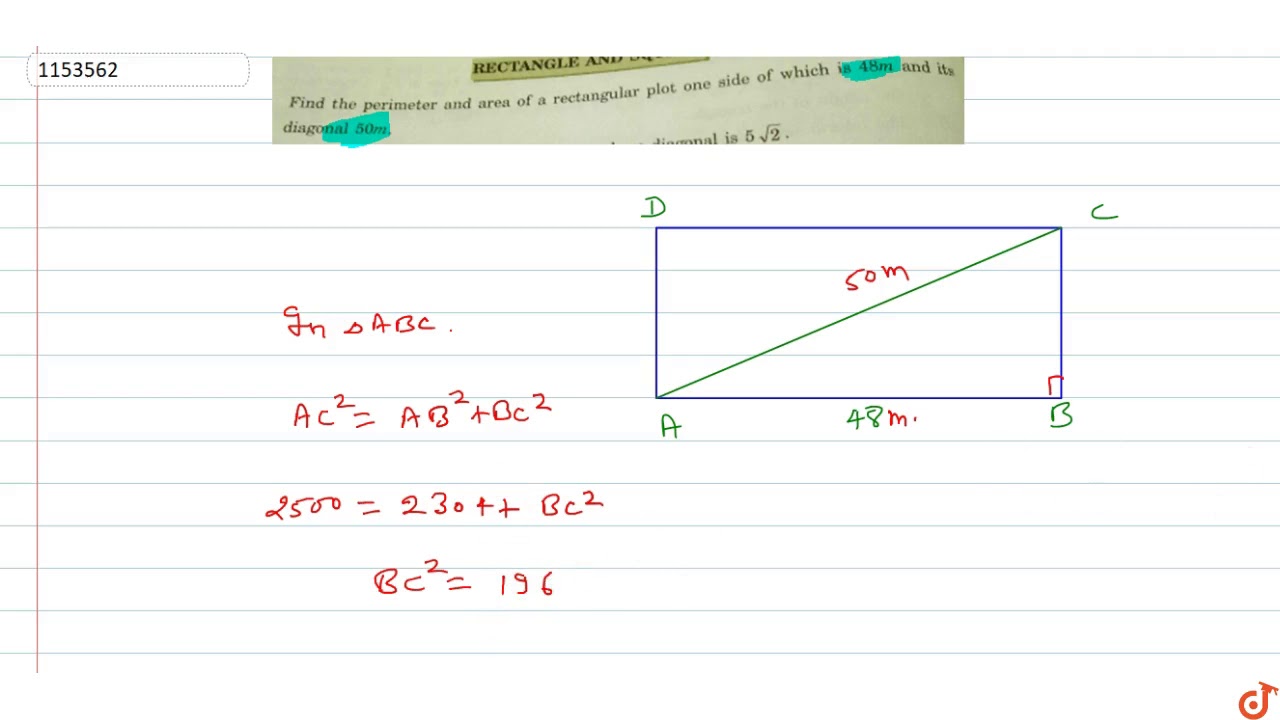 1153562
RECTANGLE AND
Find the perimeter and area of a rectangular plot one side of which is 48m and its
diagonal 50m.
diagonal is 5√2.
D
C
50m
In △ABC.
AC²= AB²+BC²
A
48m.
B
2500 = 2304+ BC²
BC²= 196